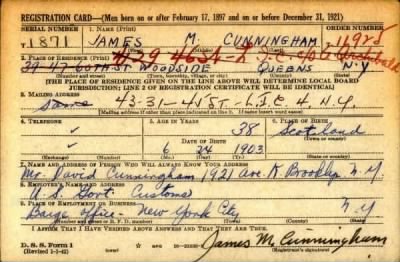 REGISTRATION CARD—(Men born on or after February 17, 1897 and on or before December 31, 1921)
SERIAL NUMBER 1. NAME (Print) ORDER NUMBER
1871 JAMES M. CUNNINGHAM 11925
(First) (Middle) (Last)
2. PLACE OF RESIDENCE (Print)
39-47-60TH ST. WOODSIDE QUEENS N.Y
(Number and street) (Town, township, village, or city) (County) (State)
[THE PLACE OF RESIDENCE GIVEN ON THE LINE ABOVE WILL DETERMINE LOCAL BOARD
JURISDICTION; LINE 2 OF REGISTRATION CERTIFICATE WILL BE IDENTICAL]
3. MAILING ADDRESS
Same 43-31-41 ST. L.I.C. 4, N.Y.
4. TELEPHONE 5. AGE IN YEARS 6. PLACE OF BIRTH
38 Scotland
DATE OF BIRTH
6 24 1903
(Exchange) (Number) (Mo.) (Day) (Yr.) (State or country)
7. NAME AND ADDRESS OF PERSON WHO WILL ALWAYS KNOW YOUR ADDRESS
Mr. David Cunningham 1921 Ave. K. Brooklyn N.Y.
8. EMPLOYER'S NAME AND ADDRESS
U.S Govt. Customs
9. PLACE OF EMPLOYMENT OR BUSINESS
Barge Office - New York City N Y
(Number and street or R. F. D. number) (Town) (County) (State)
I AFFIRM THAT I HAVE VERIFIED ABOVE ANSWERS AND THAT THEY ARE TRUE.
D. S. S. Form 1
James M. Cunningham
(Registrant's signature)